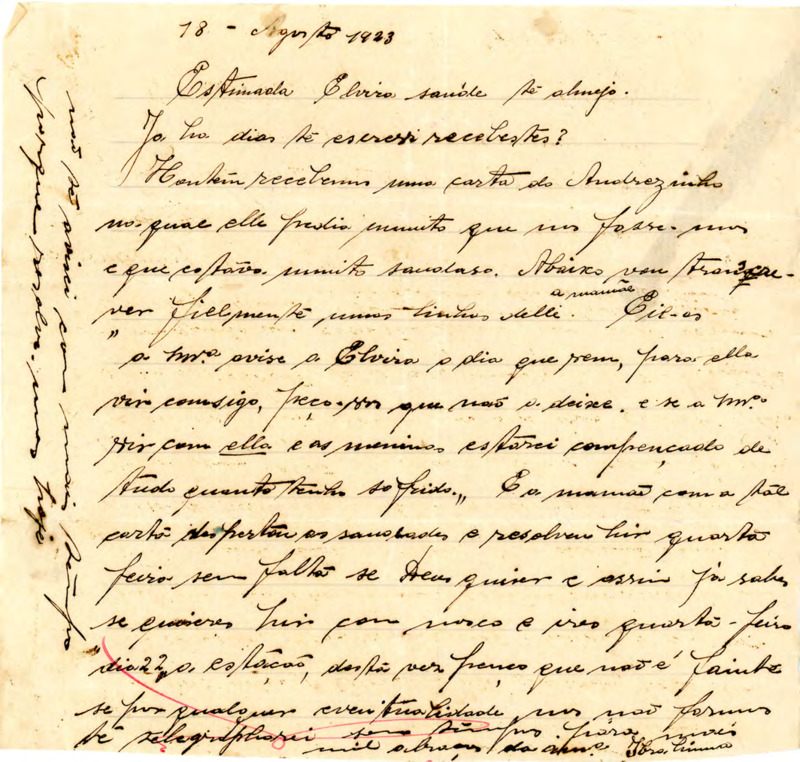 18 - Agosto 1923
Estimada Elvira saúde te almejo.
Ja ha dias te escrevi recebestes?
Hontem recebemos uma carta do Andrezinho
na qual elle pedia muito que nos fosse-mos
e que estava muito saudoso. Abaixo vou transcre-
ver fielmente umas linhas delle. Eil-as
a mamãe
"a Mrª avise a Elvira o dia que vem, para ella
vir comsigo, peço-vos que não a deixe, e se a Mrª
vir com ella e as meninas estarei compençado de
tudo quanto tenho sofrido." E a mamãe com a tal
carta despertou as saudades e resolveu hir quarta
feira sem falta se Deus quiser e assim já sabes
se quizeres hir com nosco é ires quarta-feira
"dia 22" a estação, desta vez penço que não é
se por qualquer eventualidade nos não formos
te telegrapharei sem tempo para mais
mil abraços da amª
não te avisei com mais tempo
porque resolve-mos hoje